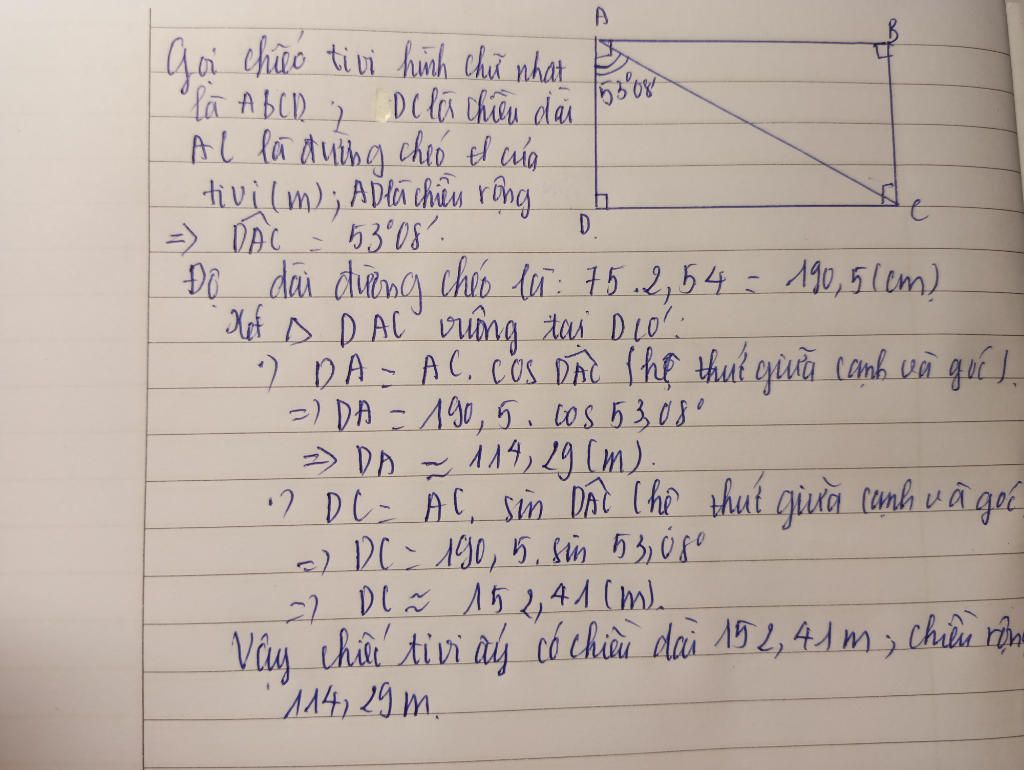 A
B
53°08'
D
C
Gọi chiếc tivi hình chữ nhật
là ABCD ; DC là chiều dài
AC là đường chéo của
tivi (m) ; AD là chiều rộng
=> DAC = 53°08'.
Độ dài đường chéo là: 75.2,54 = 190,5 (cm)
Xét △ DAC vuông tại D có:
·) DA = AC. cos DAC (hệ thức giữa cạnh và góc).
=) DA = 190,5. cos 53,08°
=> DA ≈ 114,29 (m).
·) DC = AC. sin DAC (hệ thức giữa cạnh và góc
=) DC = 190,5. sin 53,08°
=) DC ≈ 152,41 (m).
Vậy chiếc tivi ấy có chiều dài 152,41m ; chiều rộng
114,29m.